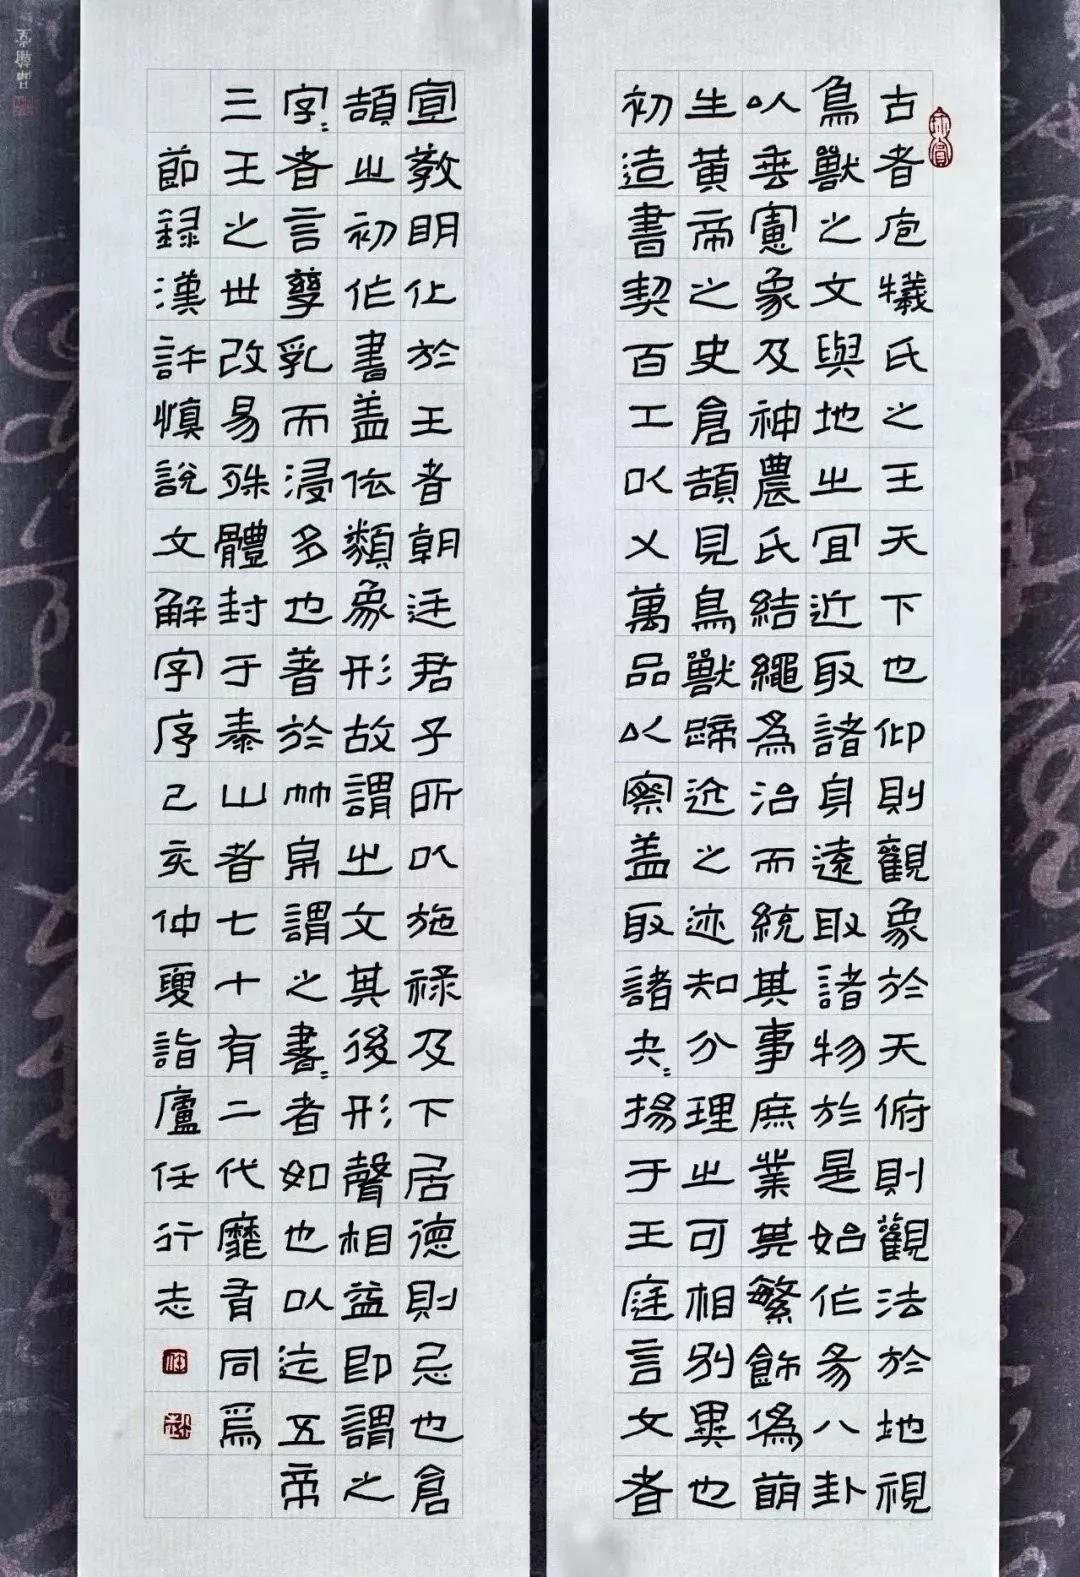 古者庖犧氏之王天下也仰則觀象於天俯則觀法於地視
鳥獸之文與地之宜近取諸身遠取諸物於是始作易八卦
以垂憲象及神農氏結繩為治而統其事庶業其繁飾偽萌
生黃帝之史倉頡見鳥獸蹄迒之迹知分理之可相別異也
初造書契百工以乂萬品以察盖取諸夬=揚于王庭言文者
宣教明化於王者朝廷君子所以施祿及下居德則忌也倉
頡之初作書盖依類象形故謂之文其後形聲相益即謂之
字=者言孳乳而浸多也著於竹帛謂之書=者如也以迄五帝
三王之世改易殊體封于泰山者七十有二代靡有同焉
節録漢許慎說文解字序己亥仲夏詣廬任行志